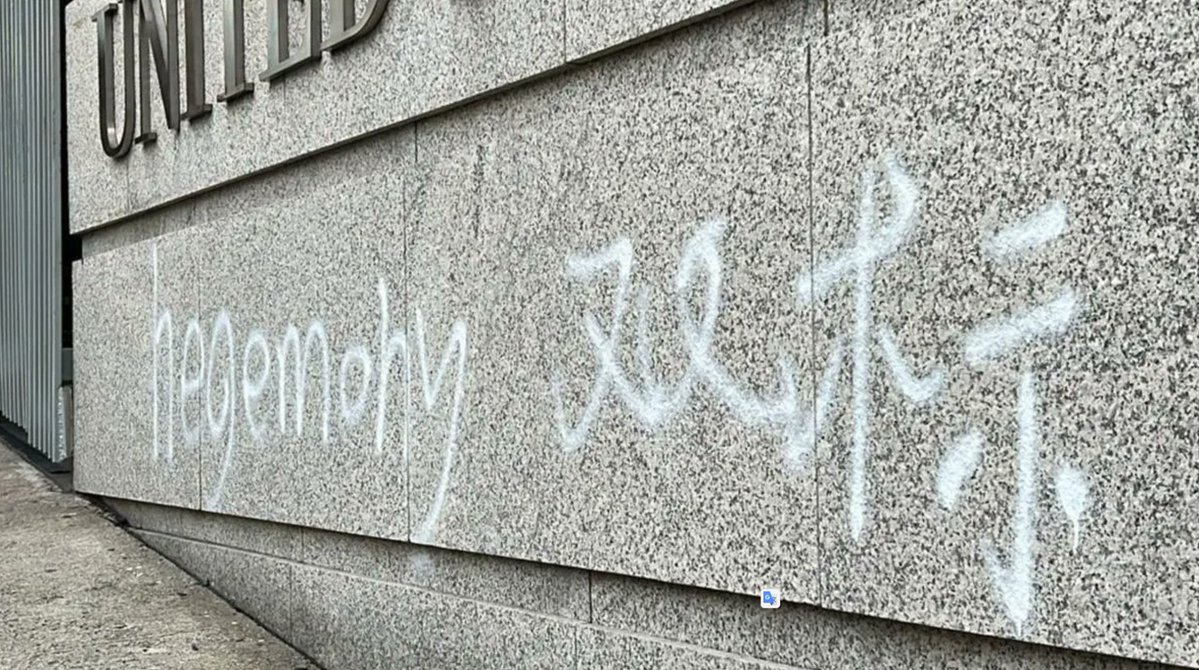 UNITED
hegemohy 双标